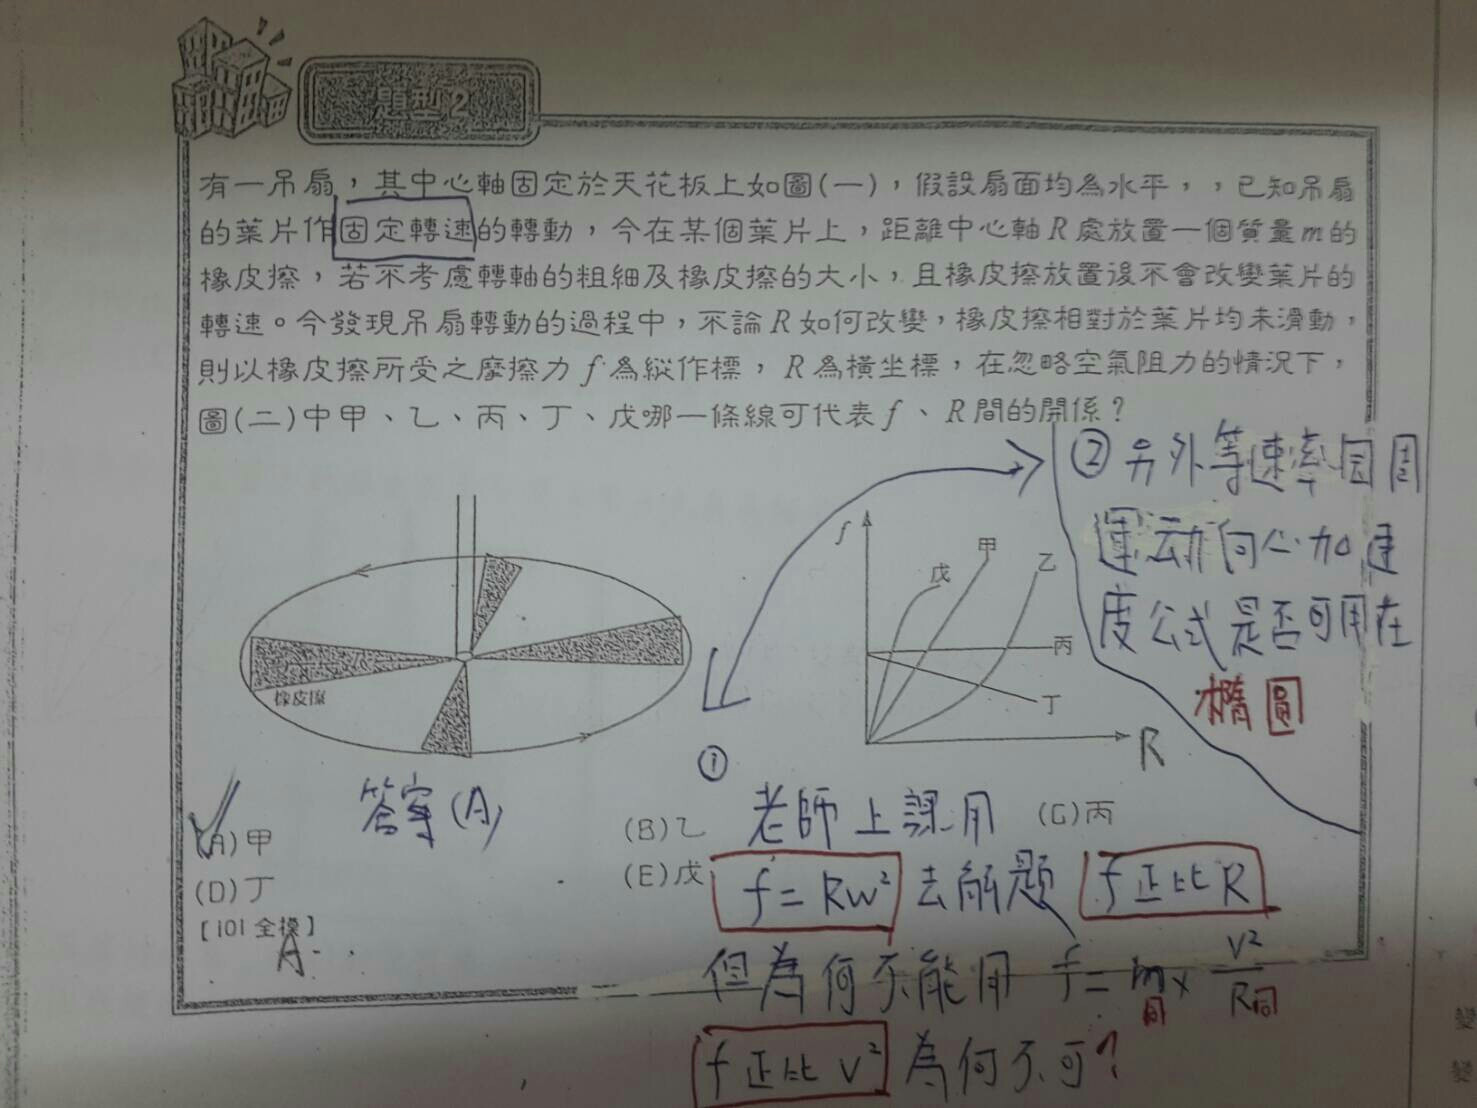 題型2
有一吊扇，其中心軸固定於天花板上如圖(一)，假設扇面均為水平，，已知吊扇
的葉片作固定轉速的轉動，今在某個葉片上，距離中心軸R處放置一個質量m的
橡皮擦，若不考慮轉軸的粗細及橡皮擦的大小，且橡皮擦放置後不會改變葉片的
轉速。今發現吊扇轉動的過程中，不論R如何改變，橡皮擦相對於葉片均未滑動，
則以橡皮擦所受之摩擦力f為縱作標，R為橫坐標，在忽略空氣阻力的情況下，
圖(二)中甲、乙、丙、丁、戊哪一條線可代表f、R間的關係？
②另外等速率圓周
運动向心加速
度公式是否可用在
橢圓
f
戊
甲
乙
丙
丁
R
橡皮擦
①
答案(A)
(A)甲
(B)乙
老師上課用
(C)丙
(D)丁
(E)戊
f=Rw²去解題 f正比R
[101全模]
A
但為何不能用 f=m×V²/R
同 同
f正比V² 為何不可?
變
變